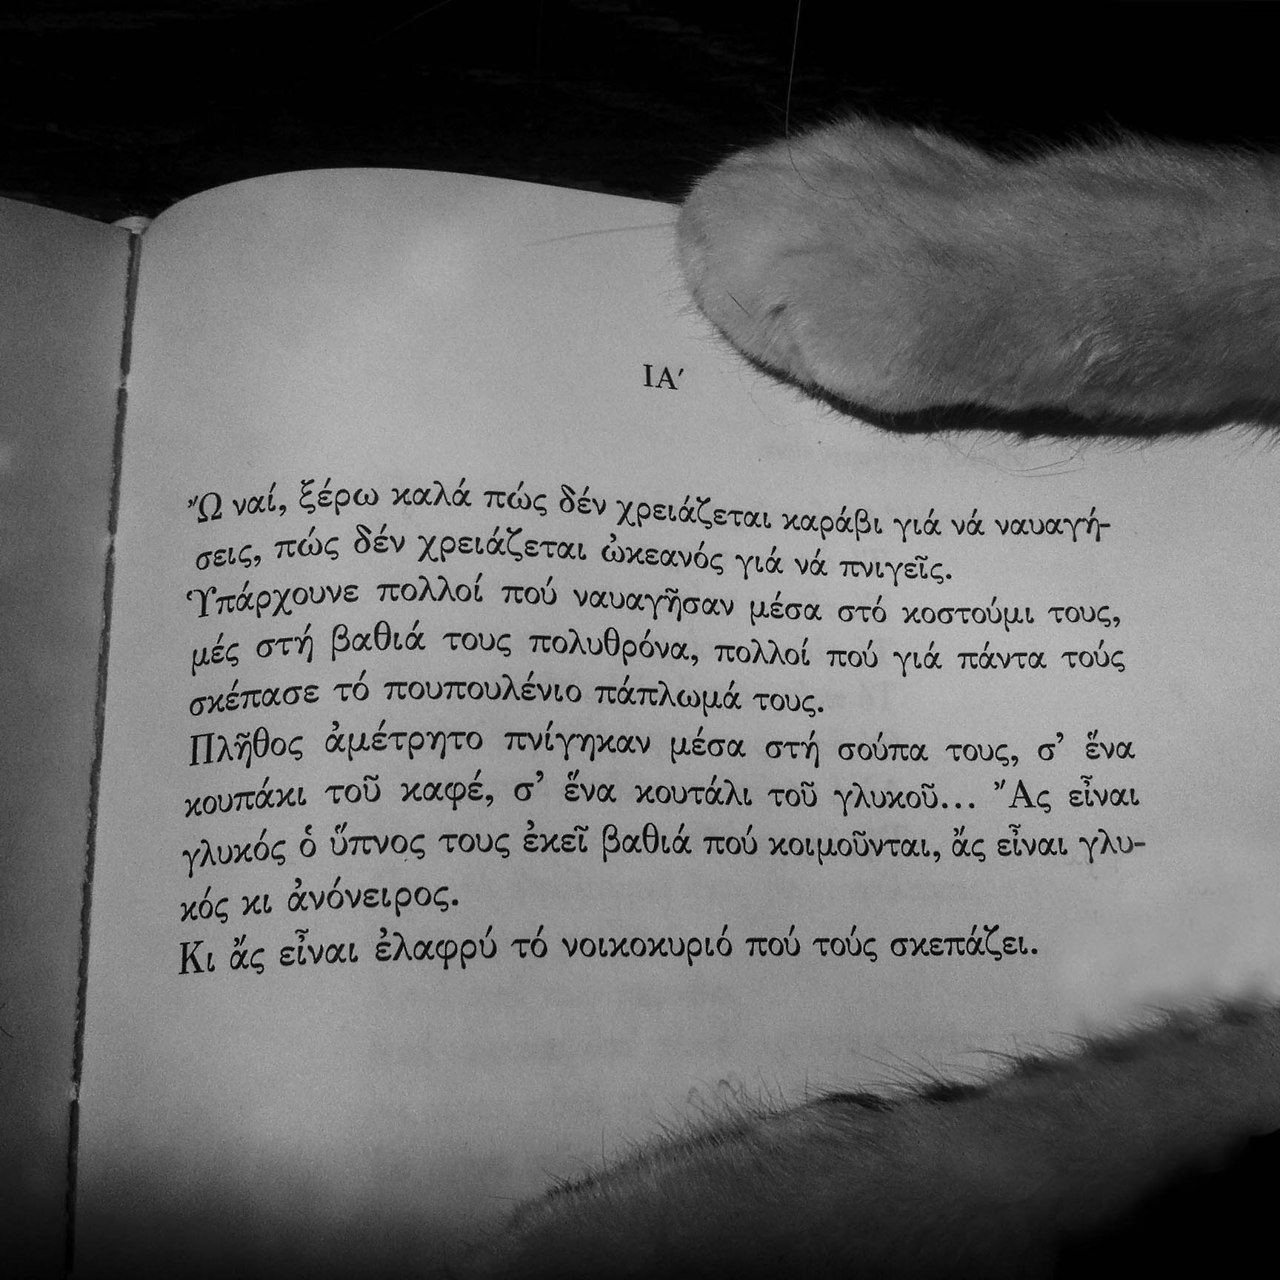 ΙΑ′
Ὤ ναί, ξέρω καλά πώς δέν χρειάζεται καράβι γιά νά ναυαγή-
σεις, πώς δέν χρειάζεται ὠκεανός γιά νά πνιγεῖς.
Ὑπάρχουνε πολλοί πού ναυαγῆσαν μέσα στό κοστούμι τους,
μές στή βαθιά τους πολυθρόνα, πολλοί πού γιά πάντα τούς
σκέπασε τό πουπουλένιο πάπλωμά τους.
Πλῆθος ἀμέτρητο πνίγηκαν μέσα στή σούπα τους, σ’ ἕνα
κουπάκι τοῦ καφέ, σ’ ἕνα κουτάλι τοῦ γλυκοῦ... Ἄς εἶναι
γλυκός ὁ ὕπνος τους ἐκεῖ βαθιά πού κοιμοῦνται, ἄς εἶναι γλυ-
κός κι ἀνόνειρος.
Κι ἄς εἶναι ἐλαφρύ τό νοικοκυριό πού τούς σκεπάζει.